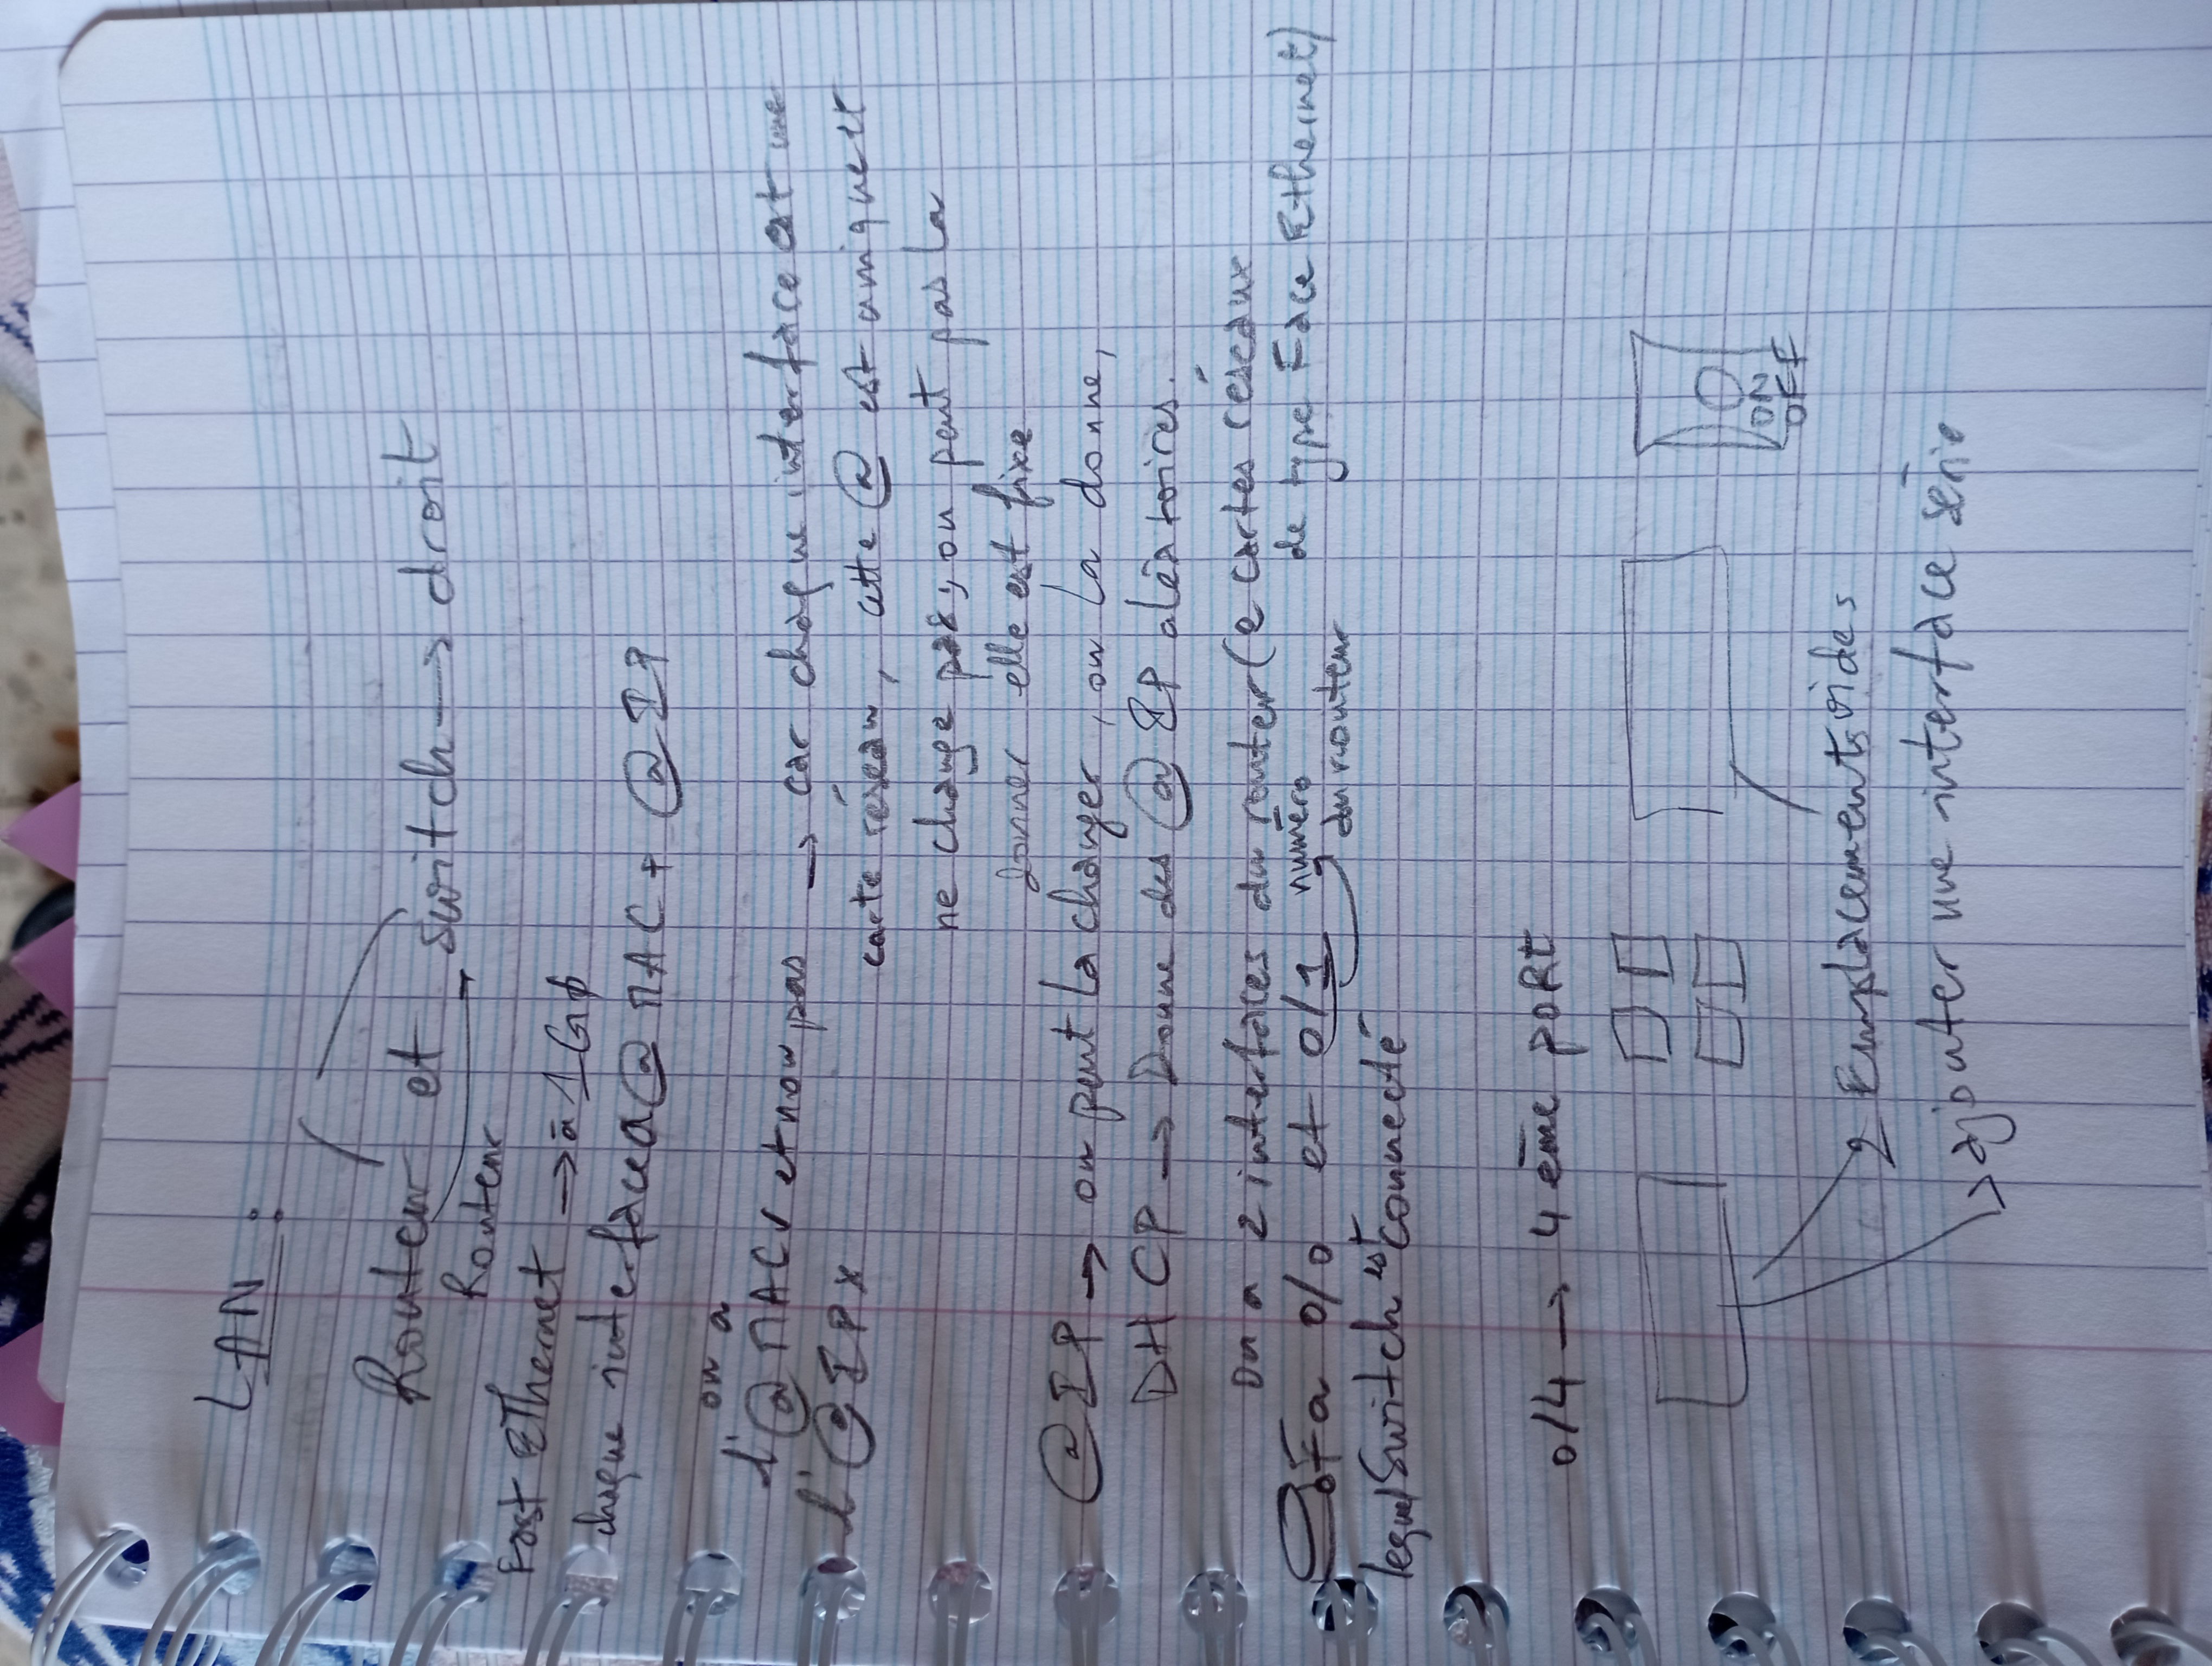 LAN :
Routeur et Switch → droit
Routeur
Fast Ethernet → à 1 Gb
chaque interface a @ MAC + @ IP
on a
l'@ MAC ✓ et non pas → car chaque interface est une
l'@ IP x carte réseau, cette @ est unique et
ne change pas, on peut pas la
donner elle est fixe
@ IP → on peut la changer, on la donne,
DHCP → Donne des @ IP aléatoires.
On a 2 interfaces du routeur (e cartes réseaux
de type Face Ethernet)
Fa 0/0 et 0/1 numéro du routeur
lequel Switch est connecté
0/4 → 4 ème poRt
ON
OFF
2 Emplacements vides
→ ajouter une interface série